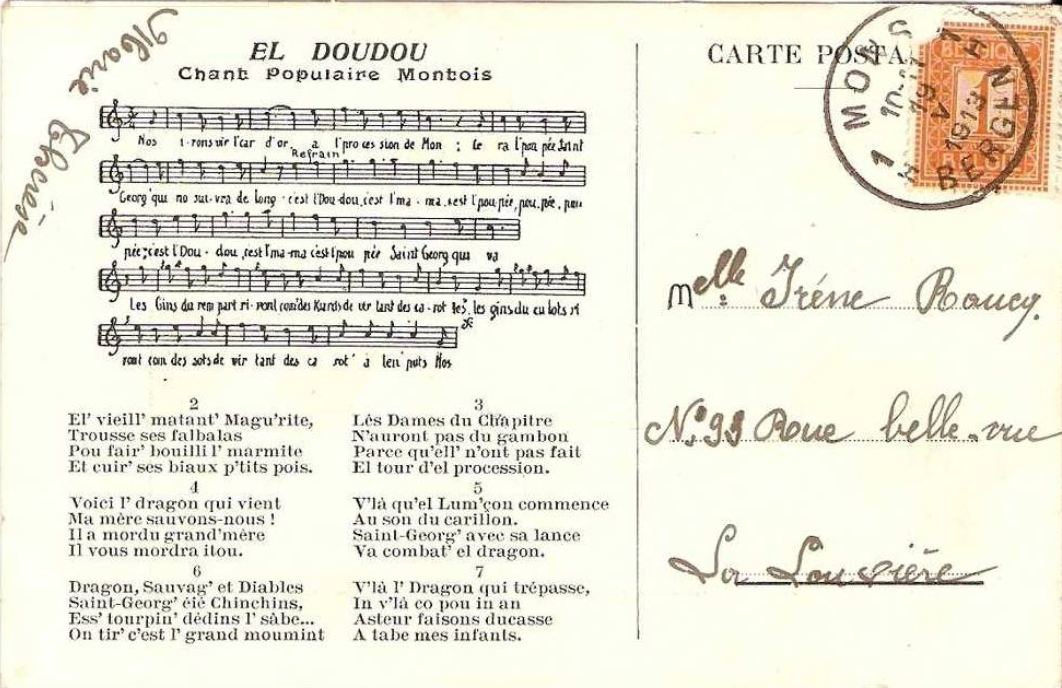 Marie Thérèse
EL DOUDOU
Chant Populaire Montois
Nos i-rons vir l'car d'or a l'procession de Mon ; Le ra l'pou pée Saint
Refrain
Georg' qui no sui-vra de long c'est l'Dou-dou, c'est l'ma-ma, c'est l'pou-pée, pou-pée, pou-
pée; c'est l'Dou-dou, c'est l'ma-ma c'est l'pou pée Saint Georg qui va
Les Gins du rem part ri-ront com'des Kurds de vir tant des ca-rot tes, les gins du cu lots ri
ront com des sots de vir tant des ca rot' à leu' puts Nos
2
El' vieill' matant' Magu'rite,
Trousse ses falbalas
Pou fair' bouilli l' marmite
Et cuir' ses biaux p'tits pois.
3
Lés Dames du Chapitre
N'auront pas du gambon
Parce qu'ell' n'ont pas fait
El tour d'el procession.
4
Voici l' dragon qui vient
Ma mère sauvons-nous !
Il a mordu grand'mère
Il vous mordra itou.
5
V'là qu'el Lum'çon commence
Au son du carillon.
Saint-Georg' avec sa lance
Va combat' el dragon.
6
Dragon, Sauvag' et Diables
Saint-Georg' éié Chinchins,
Ess' tourpin' dédins l' sâbe...
On tir' c'est l' grand moumint
7
V'là l' Dragon qui trépasse,
In v'là co pou in an
Asteur faisons ducasse
A tabe mes infants.
CARTE POSTA
BELGIQUE
1
1 MONS 1
1913
BERGEN
Melle Iréne Roucq.
N° 93 Roue belle-vue
La Louvière